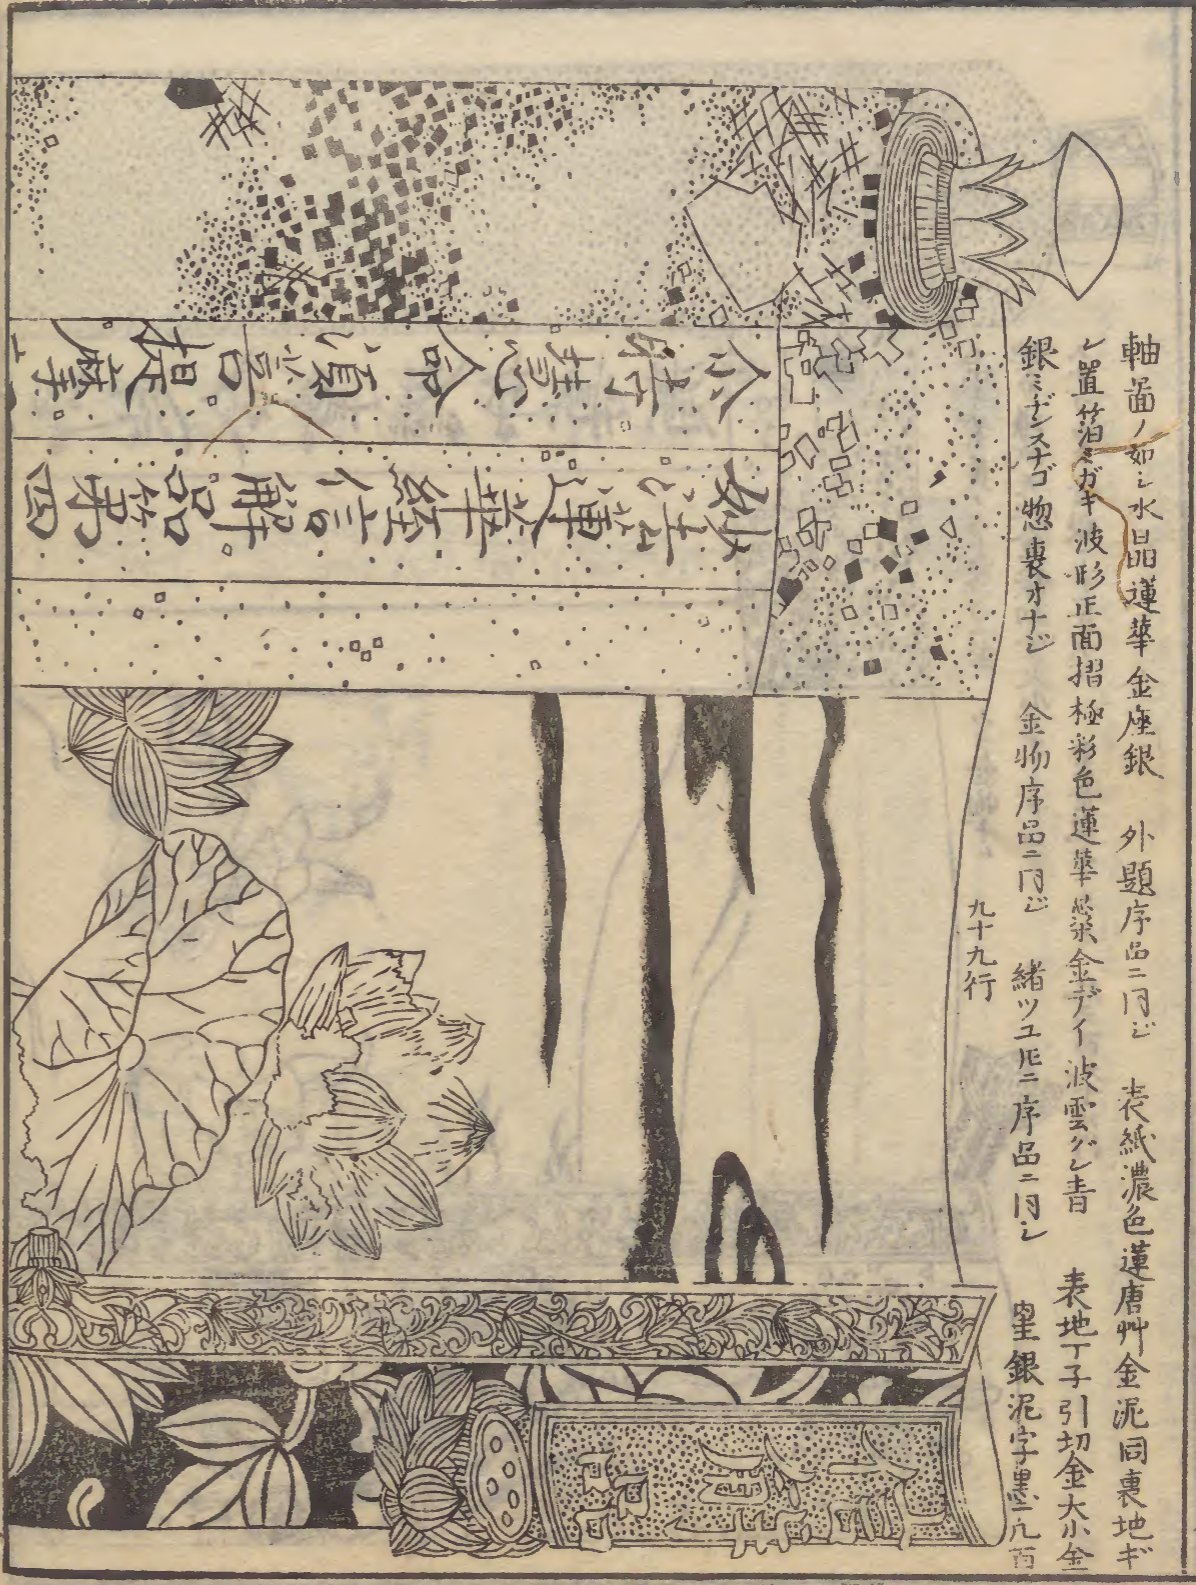 軸畵ノ如シ水晶蓮華金座銀 外題序品ニ同ジ 表紙濃色蓮唐艸金泥同裏地ギ
レ置箔ミガキ波形正面摺極彩色蓮華葉金デイ波雲グレ青 表地丁子引切金大小金
銀ミヂンスナゴ惣裏オナジ 金物序品ニ同ジ 緒ツユ𪜈ニ序品ニ同シ 罫銀泥字墨凡百
九十九行
妙法蓮華經信解品第四
尓時慧命須菩提摩
信解品